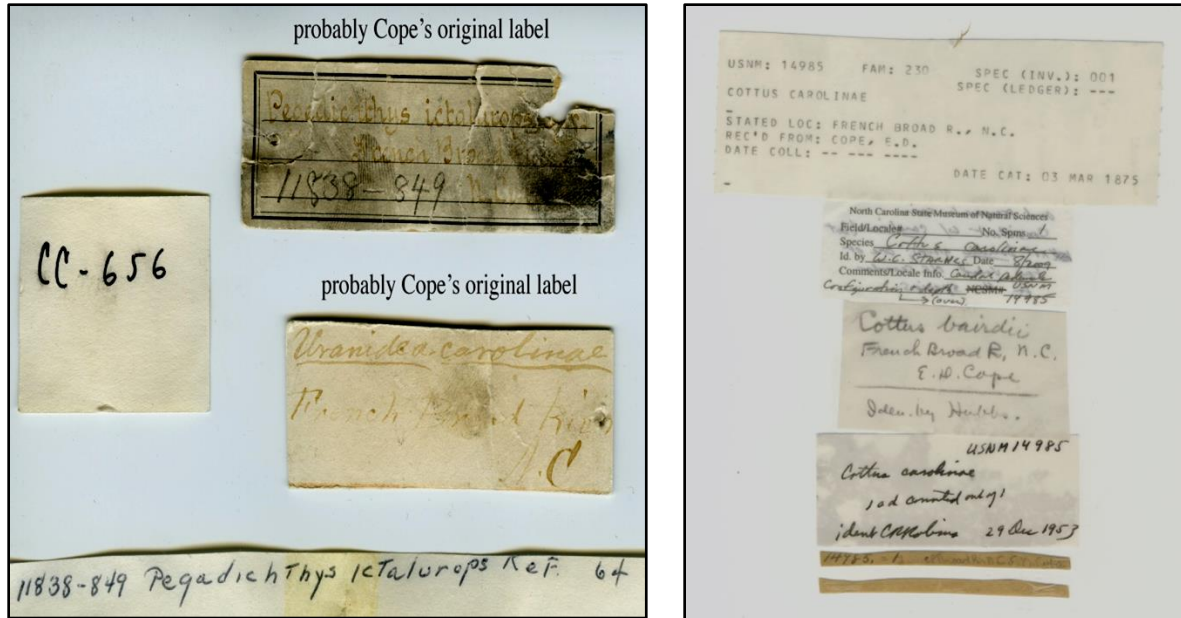 probably Cope's original label
Pegadicthys ictalurops
French Broad
11838-849
CC-656
probably Cope's original label
Uranidea carolinae
French Broad River
N.C
11838-849 Pegadichthys ictalurops Ref. 64
USNM: 14985 FAM: 230 SPEC (INV.): 001
SPEC (LEDGER): ---
COTTUS CAROLINAE
-
STATED LOC: FRENCH BROAD R., N.C.
REC'D FROM: COPE, E.D.
DATE COLL: -- --- ----
DATE CAT: 03 MAR 1875
-
North Carolina State Museum of Natural Sciences
Field/Locale# No. Spms 1
Species Cottus carolinae
Id. by W.C. Starnes Date
Comments/Locale Info. USNM
Configuration NCSM# 14985
(over)
Cottus bairdii
French Broad R, N.C.
E.D. Cope
Iden. by Hubbs.
USNM 14985
Cottus carolinae
1 ad counted only 1
ident CR Robins 29 Dec 1953
14985.